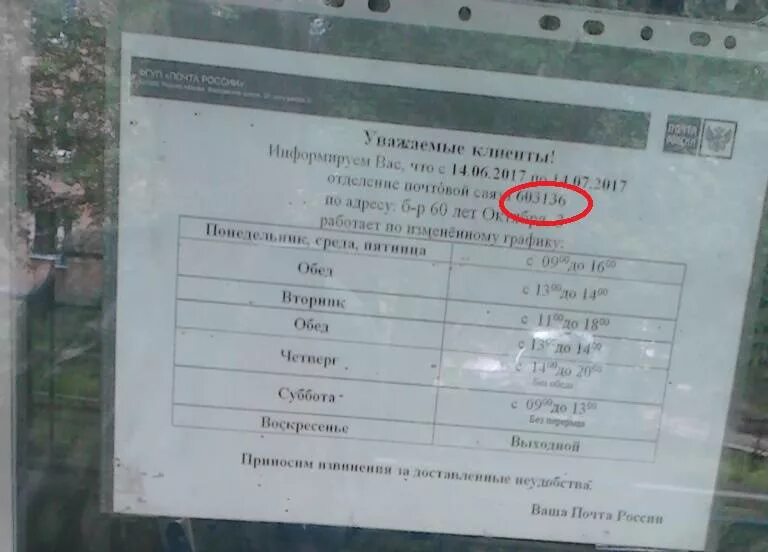 ФГУП «ПОЧТА РОССИИ»
ПОЧТА РОССИИ
Уважаемые клиенты!
Информируем Вас, что с 14.06.2017 по 14.07.2017
отделение почтовой связи 603136
по адресу: б-р 60 лет Октября,
работает по изменённому графику:
Понедельник, среда, пятница с 09⁰⁰ до 16⁰⁰
Обед с 13⁰⁰ до 14⁰⁰
Вторник с 11⁰⁰ до 18⁰⁰
Обед с 13⁰⁰ до 14⁰⁰
Четверг с 14⁰⁰ до 20⁰⁰
Без обеда
Суббота с 09⁰⁰ до 13⁰⁰
Без перерыва
Воскресенье Выходной
Приносим извинения за доставленные неудобства.
Ваша Почта России